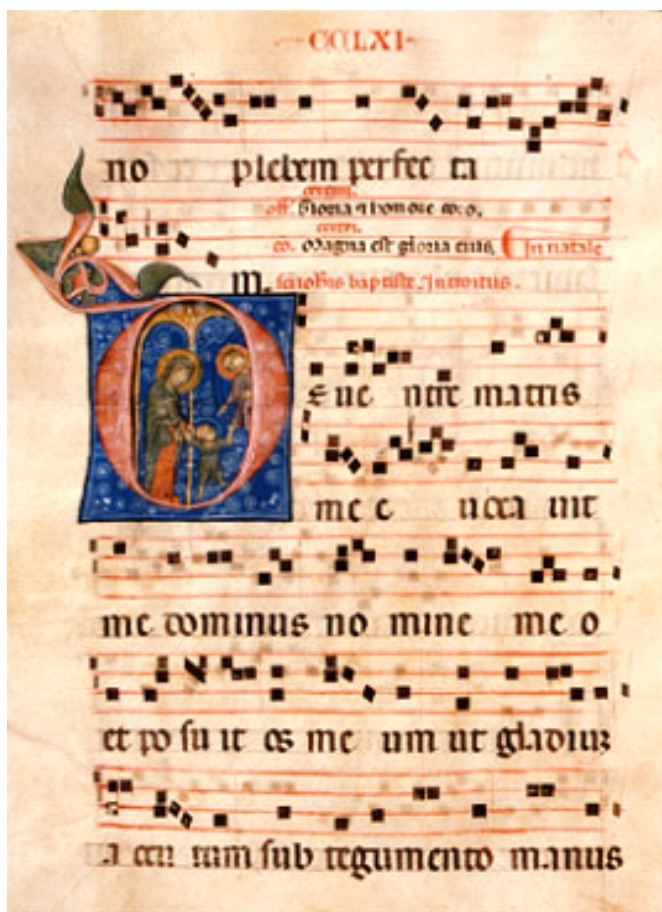 CCLXI
no plebem perfec ta
off. Gloria et honore coro.
co. Magna est gloria eius. In natale
m. sci iohis baptiste. Introitus.
D
e ue ntre matris
me e uoca uit
me dominus no mine me o
et po su it os me um ut gladium
a cu tum sub tegumento manus